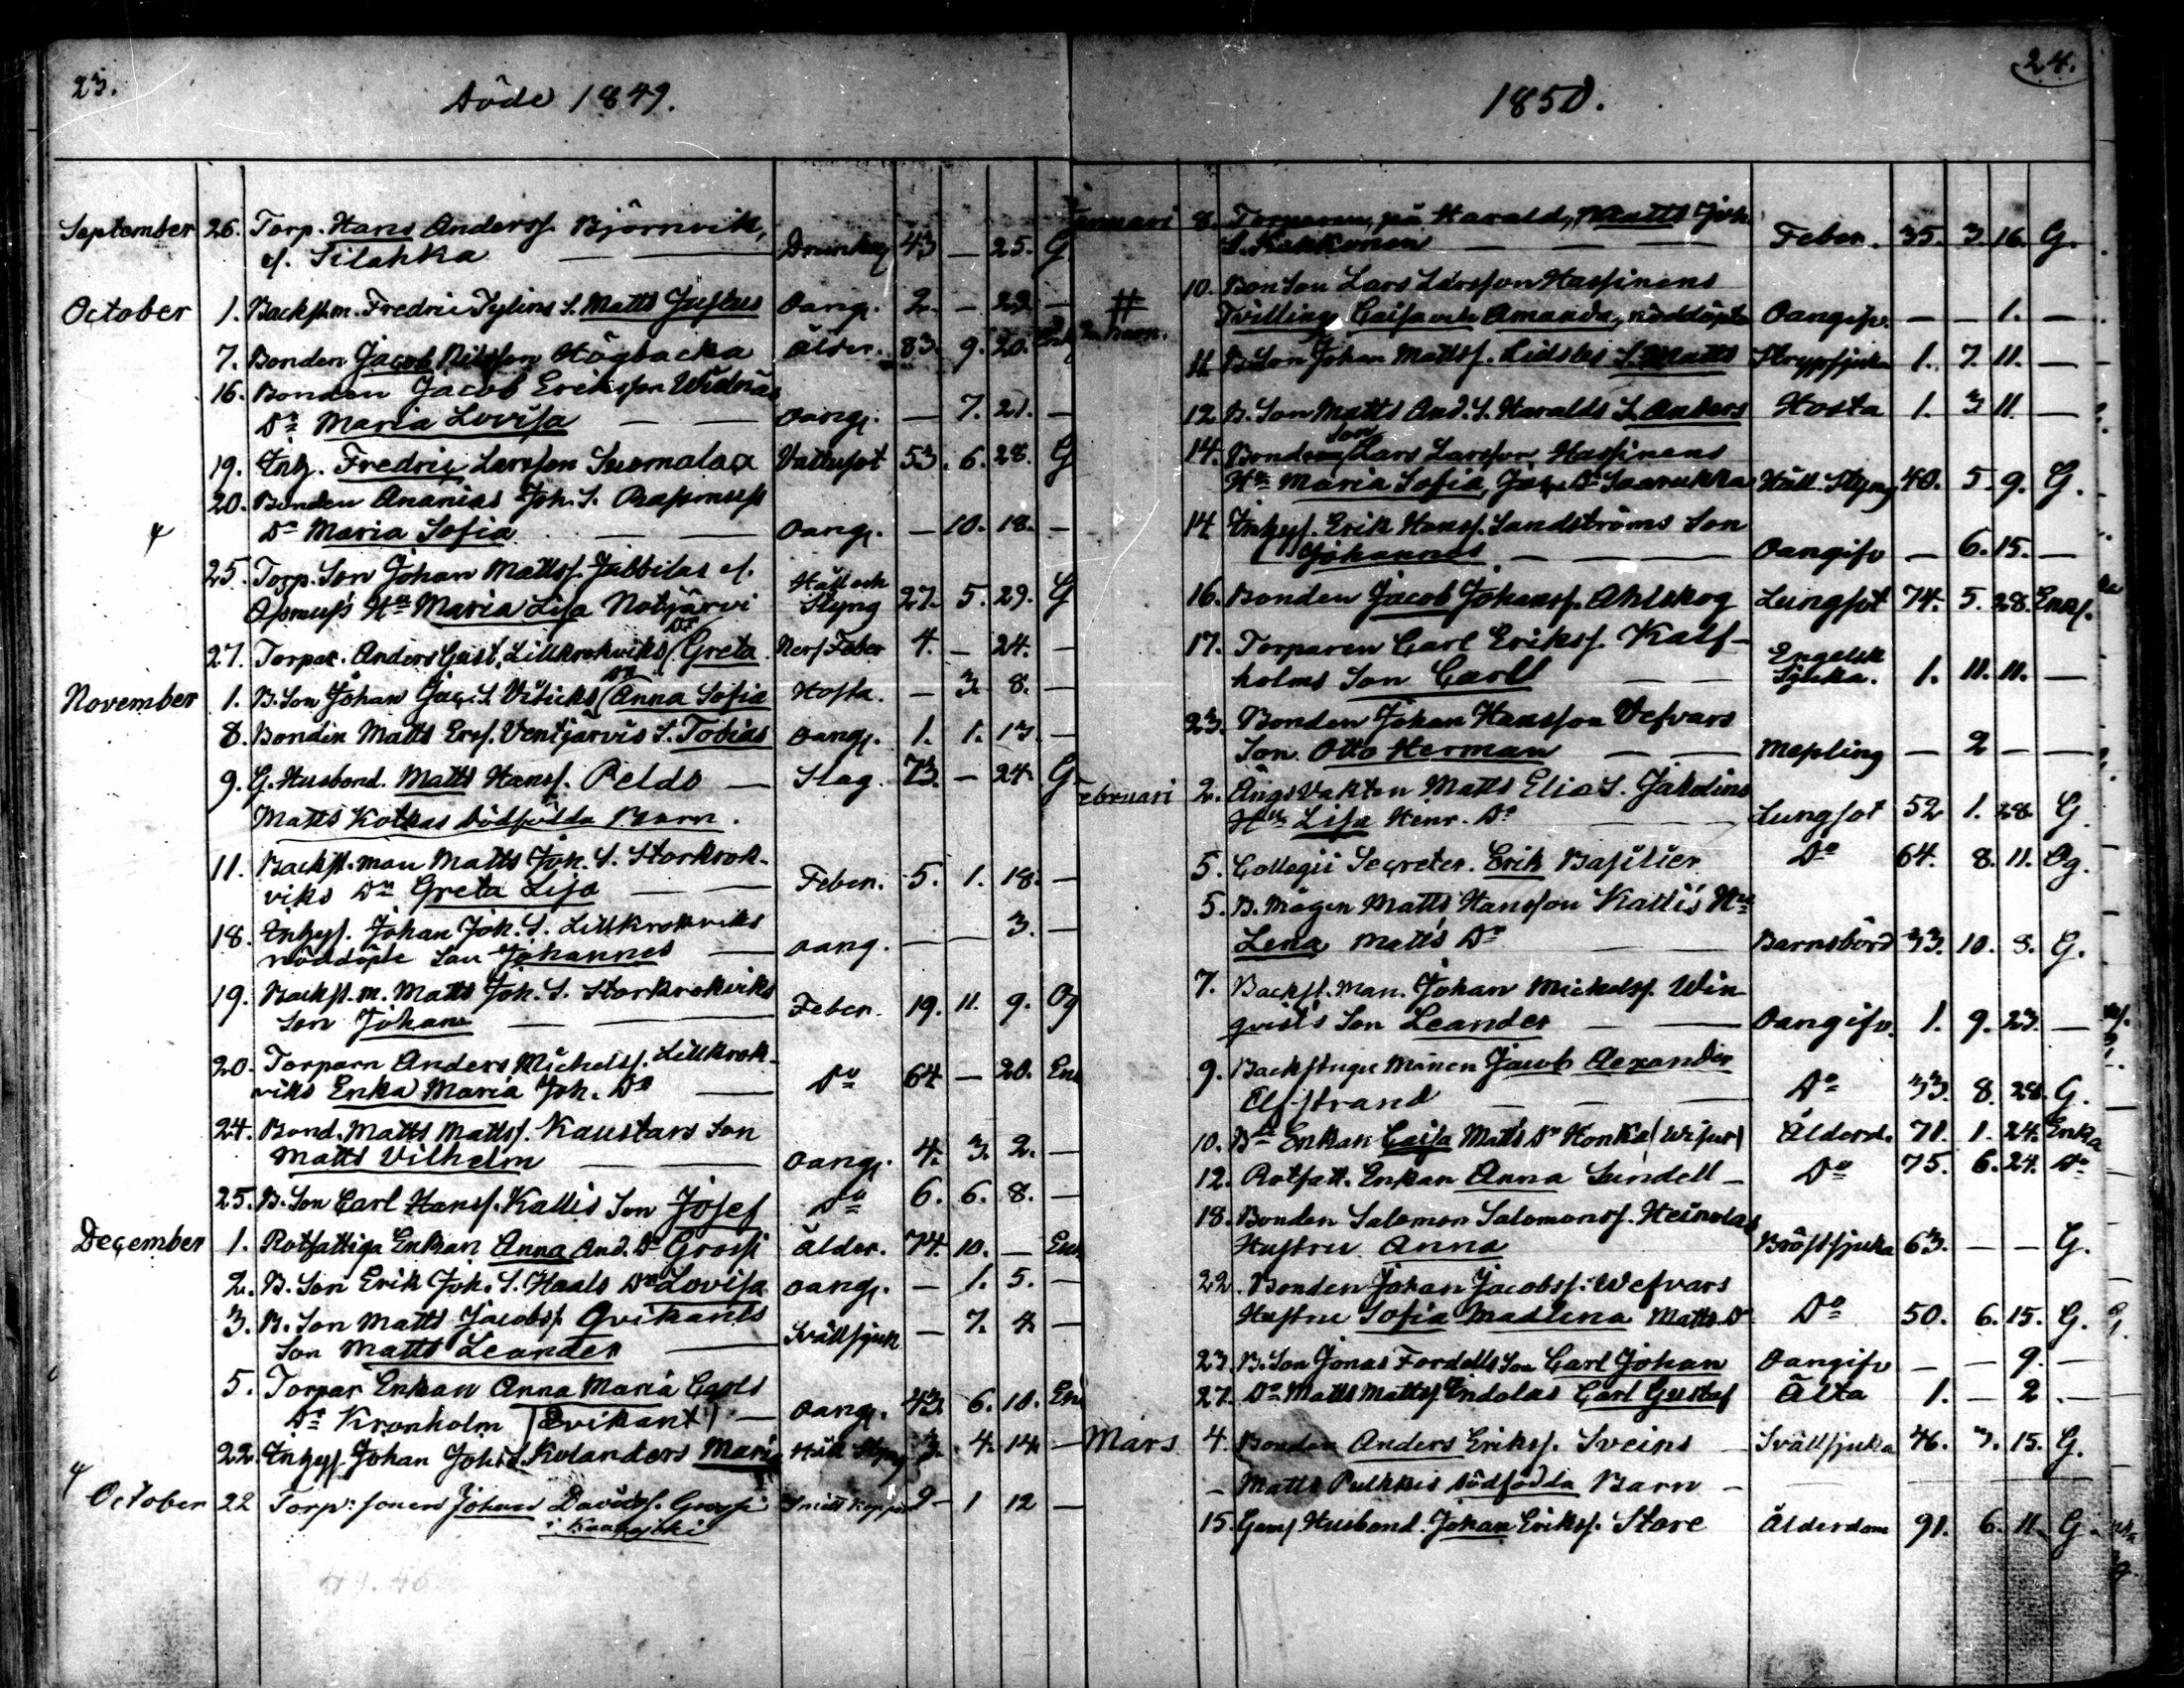 23.
Döde 1849.
September 26. Torp. Hans Anderss. Björnvik,
el. Tilahka — — Drunkng 43 — 25. G
October 1. Backst.m. Fredric Tylins S. Matts Justus Oang. 2. — 22. —
7. Bonden Jacob Nilsson Högbacka Ålder. 83. 9. 20. Enk
16. Bonden Jacob Eriksson Widnäs
Dr Maria Lovisa — — Oang. — 7. 21. —
19. Inh. Fredric Larsson Suomalax Vattusot 53. 6. 28. G
20. Bonden Ananias Joh. S. Rasmuss
Dr Maria Sofia — — Oang. — 10. 18. —
25. Torp. Son Johan Matts. Jabbilas el.
Assmuss Hu Maria Lisa Notjärvi Håll och Styng 27. 5. 29. G
27. Torpar. Anders Gust. Lillkrokviks Dr Greta Nerf Feber 4. — 24. —
November 1. B. Son Johan Jac. S. Visicks Dr Anna Sofia Hosta. — 3. 8. —
8. Bonden Matts Ers. Ventjärvis S. Tobias Oang. 1. 1. 13. —
9. G. Husbond. Matts Hanss. Peldo — Slag. 73. — 24. G
Matts Kotkas dödfödda Barn.
11. Backst. man Matts Joh. S. Storkrok-
viks Dr Greta Lisa — — Feber. 5. 1. 18. —
18. Inhys. Johan Joh. S. Lillkrokviks
nöddöpte Son Johannes — Oang. — — 3. —
19. Backst. m. Matts Joh. S. Storkrokviks
Son Johan — — Feber. 19. 11. 9. Og
20. Torparn Anders Michelss. Lillkrok-
viks Enka Maria Joh. Dr — Do 64 — 20. Enk
24. Bond. Matts Mattss. Kaustars Son
Matts Vilhelm — — Oang. 4. 3. 2. —
25. B. Son Carl Hanss. Kallis Son Josef Do 6. 6. 8. —
December 1. Rotfattiga Enkan Anna And. Dr Grossi Ålder. 74. 10. — Enk
2. B. Son Erik Joh. S. Haals Dr Lovisa Oang. — 1. 5. —
3. B. Son Matts Jacobs. Qvikants
Son Matts Leander — Svällsjuk — 7. 4. —
5. Torpar Enkan Anna Maria Carls
Dr Kronholm (Qvikant) — Oang. 43. 6. 10. Enk
22. Inhys. Johan Joh. S. Kolanders Maria Håll Styng 3. 4. 14. —
October 22 Torp: sonen Johan Davids. Grossi Smitt koppor 2 — 1 12 —
24.
1850.
Januari 8. Torparen, på Harald, Matts Joh.
S. Kakkonen — — — Feber. 35. 3. 16. G.
10. Bon Son Lars Larsson Hassinens
Tvilling Caisa och Amanda, nöddöpte Oangifv. — — 1. —
11. B. Son Johan Mattss. Lidsles S. Matts Strypsjuka 1. 7. 11. —
12. B. Son Matts And. S. Haralds S. Anders Hosta 1. 3. 11. —
14. Bondeson Lars Larsson Hassinens
Hu Maria Sofia, Jac. Dr Saarukka Håll. Styng 40. 5. 9. G.
14. Inhys. Erik Hanss. Sandströms Son
Johannes — — Oangifv — 6. 15. —
16. Bonden Jacob Johanss. Ahlskog Lungsot 74. 5. 28. Enkl.
17. Torparen Carl Erikss. Kalf-
holms Son Carl — — Engelsk Sjuka. 1. 11. 11. —
23. Bonden Johan Hansson Vefvars
Son Otto Herman — — Messling — 2 — —
Februari 2. Ängsvakten Matts Elias S. Jakolins
Hu Lisa Henr. Dr — — Lungsot 52 1. 28. G.
5. Collegii Secreter. Erik Basilier Do 64. 8. 11. Og.
5. B. Mågen Matts Hansson Kallis Hu
Lena Matts Dr — Barnsbörd 33. 10. 8. G.
7. Backst. Man. Johan Mickelss. Win-
qvists Son Leander — — Oangifv. 1. 9. 23. —
9. Backstugu Mannen Jacob Alexander
Elfstrand — — — Do 33. 8. 28. G.
10. Be Enkan Caisa Matts Dr Honka Ålderd. 71. 1. 24. Enka
12. Rotfatt. Enkan Anna Sundell — Do 75. 6. 24. Do
18. Bonden Salomon Salomonss. Heinolas
Hustru Anna Bröstsjuka 63. — — G.
22. Bonden Johan Jacobss. Wefvars
Hustru Sofia Madlena Matts Dr Do 50. 6. 15. G.
23. B. Son Jonas Fordells Son Carl Johan Oangifv — — 9. —
27. Do Matts Mattss. Indolas Carl Gustaf Älta 1. — 2. —
Mars 4. Bonden Anders Erikss. Sveins — Svällsjuka 46. 3. 15. G.
— Matts Pulkkis dödfödda Barn —
15. Gam. Husbond. Johan Erikss. Store Ålderdom 91. 6. 11. G.